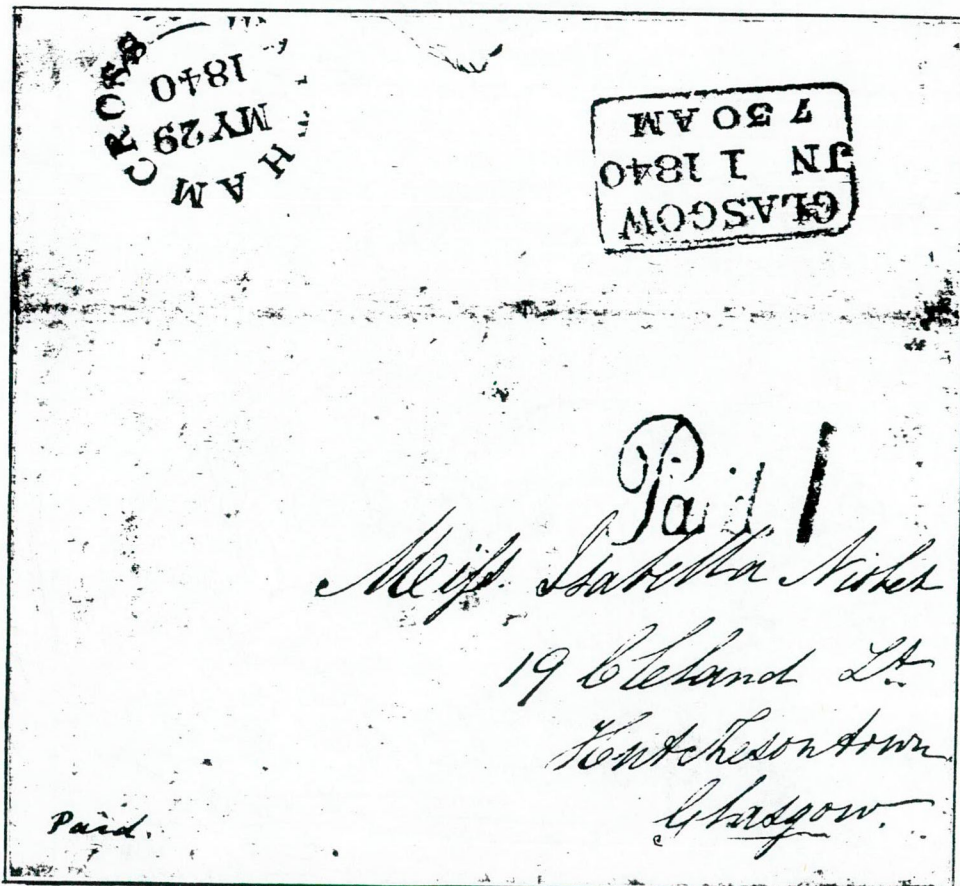 HAM CROSS
MY 29
1840
GLASGOW
JN 1 1840
7 30 AM
Paid 1
Miſs. Isabella Nisbet
19 Cleland St.
Hutchesontown
Glasgow.
Paid.